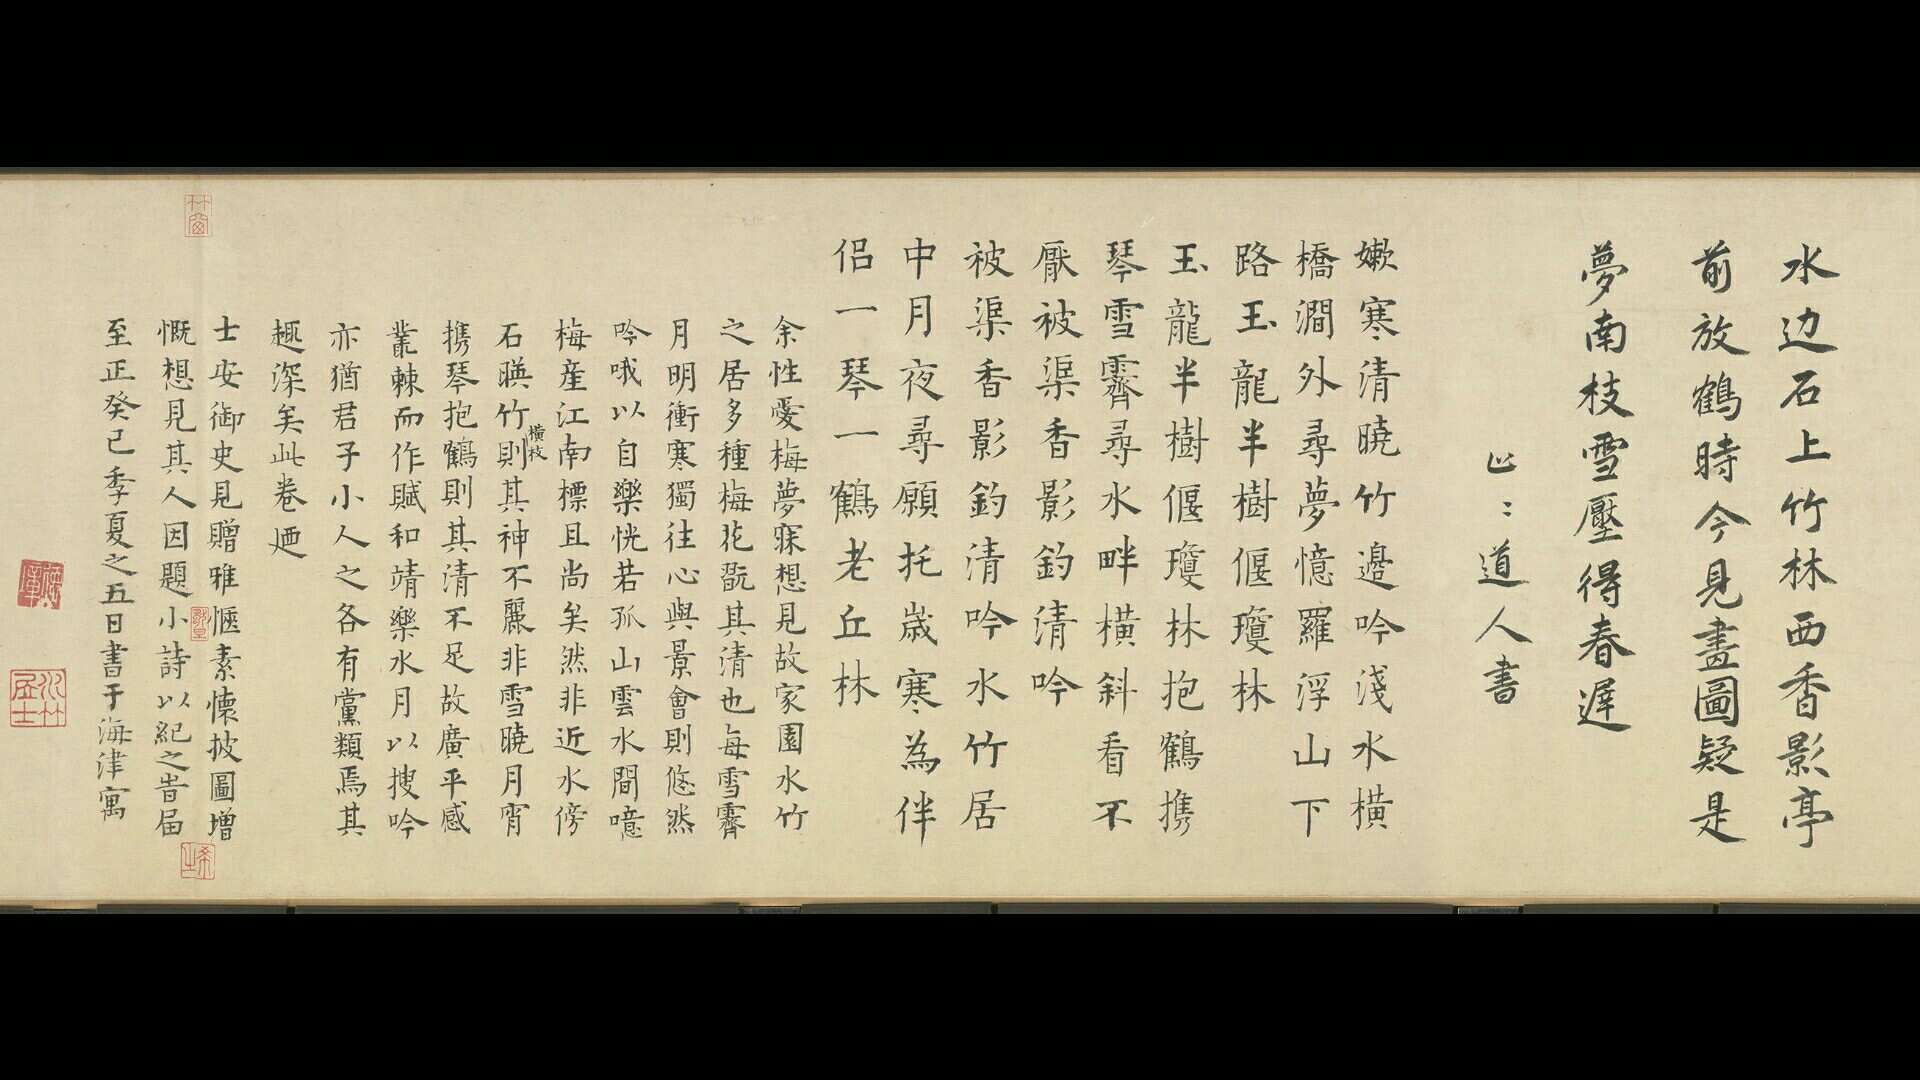 水边石上竹林西香影亭
前放鶴時今見畫圖疑是
夢南枝雪壓得春遲
山〻道人書
嫩寒清曉竹邊吟淺水橫
橋澗外尋夢憶羅浮山下
路玉龍半樹偃瓊林
玉龍半樹偃瓊林抱鶴携
琴雪霽尋水畔橫斜看不
厭被渠香影釣清吟
被渠香影釣清吟水竹居
中月夜尋願托歲寒為伴
侶一琴一鶴老丘林
余性愛梅夢寐想見故家園水竹
之居多種梅花翫其清也每雪霽
月明衝寒獨往心與景會則悠然
吟哦以自樂恍若孤山雲水間噫
梅産江南標且尚矣然非近水傍
石暎竹則其神不麗非雪曉月宵
橫枝
携琴抱鶴則其清不足故廣平感
叢棘而作賦和靖樂水月以搜吟
亦猶君子小人之各有黨類焉其
趣深矣此卷廼
士安御史見贈雅愜素懷披圖增
慨想見其人因題小詩以紀之旹届
至正癸巳季夏之五日書于海津寓